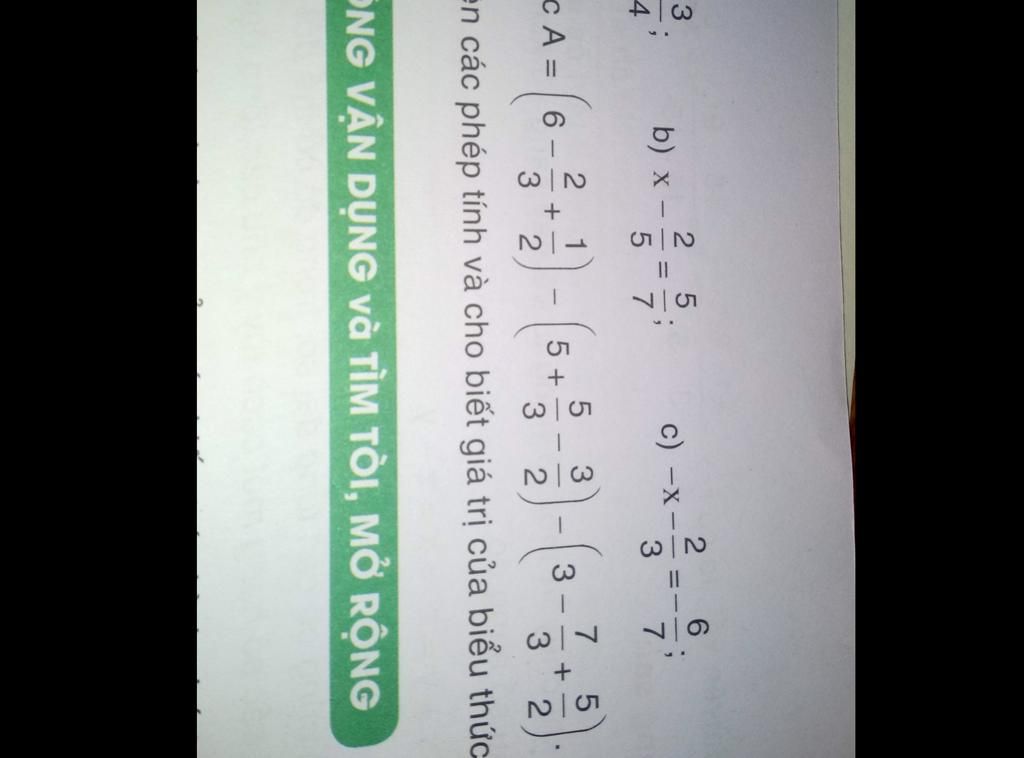 3/4; b) x - 2/5 = 5/7; c) -x - 2/3 = -6/7;
A = (6 - 2/3 + 1/2) - (5 + 5/3 - 3/2) - (3 - 7/3 + 5/2).
các phép tính và cho biết giá trị của biểu thức
VẬN DỤNG và TÌM TÒI, MỞ RỘNG